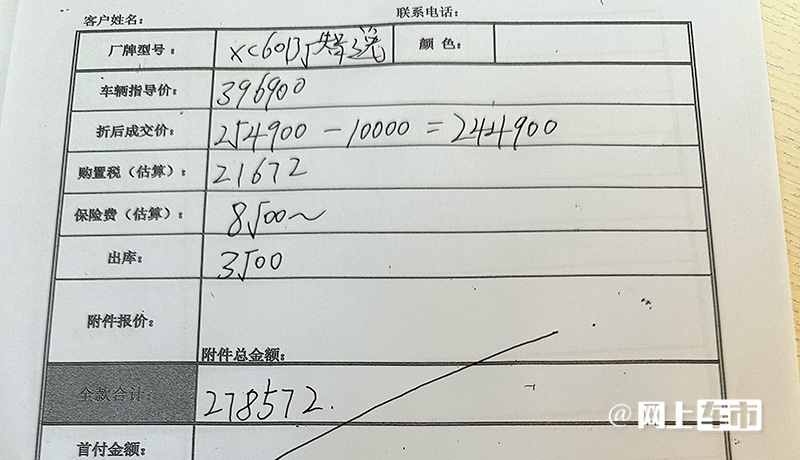 客户姓名： 联系电话：
厂牌型号： XC60 B5 智远 颜色：
车辆指导价： 396900
折后成交价： 254900 - 10000 = 244900
购置税（估算）： 21672
保险费（估算）： 8500~
出库： 3500
附件报价：
附件总金额：
全款合计： 278572.
首付金额：
@网上车市